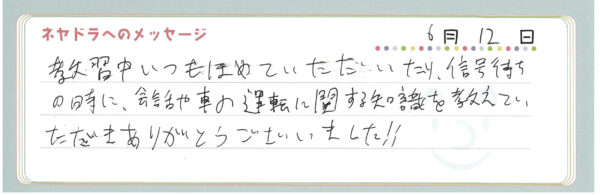 ネヤドラへのメッセージ
6月 12 日
教習中いつもほめていただいたり、信号待ち
の時に、会話や車の運転に関する知識を教えてい
ただきありがとうございました!!